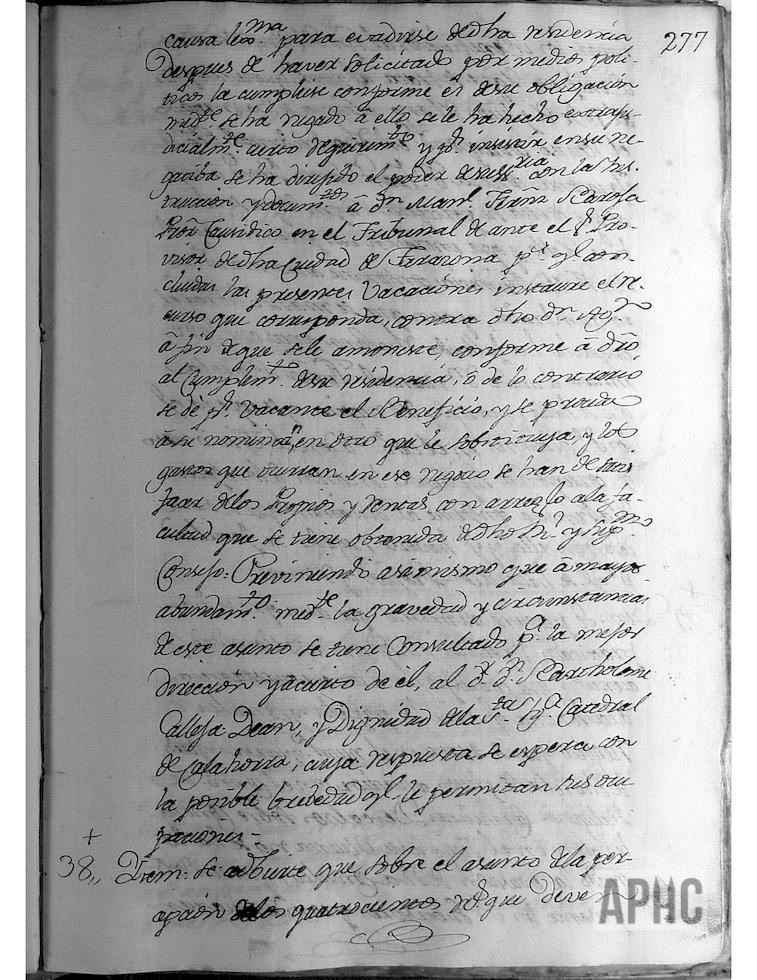 277
causa lexma. para evadirse de dha residencia
despues de haver solicitado por medios poli-
ticos la cumpliese conforme es de su obligación
medte. se ha negado a ello se le ha hecho extraju-
dicialmte. cierto Requirimto. y pr. insistir en su ne-
gativa se ha dirijido el poder de con la Ins-
truccion y documtos. â Dn. Manl. Fernz
Causidico en el Tribunal de ante el Sr. Pro-
visor de dha Ciudad de Tarazona pa. ql. con-
cluidas las presentes Vacaciones instaure el re-
curso que corresponda, contra dho Dn.
â fin de que se le amoneste, conforme â dro
al Cumplemto. de su residencia, ô de lo contrario
se dé pr. vacante el Beneficio, y se proceda
â su nominacn. en otro que le sobstituya, y los
gastos que ocurran en ese negocio se han de satis
facer de los Propios y Rentas con arreglo a la fa-
cultad que se tiene obtenida de dho Rl. y Supmo.
Consejo. Previniendo asimismo que â mayor
abundamto. medte. la gravedad y circunstancias
de este asunto se tiene Consultado pa. la mejor
direccion y acierto de él, al Sr. Dn. Bartholome
Calleja Dean, y Dignidad de la Sta. Yga. Catedral
de Calahorra, cuya respuesta se espera con
la posible brebedad ql. le permitan sus ocu
paciones-
+
38,, Ytem: se adbierte que sobre el asunto de la per-
cepción de los quatrocientos rs. que deven
APHC